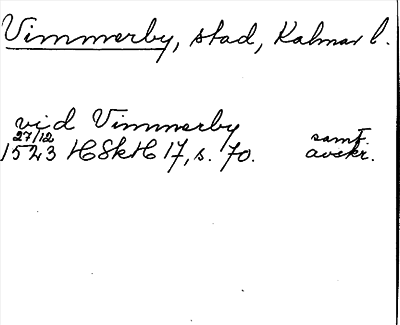 Vimmerby, stad, Kalmar l.
vid Vimmerby
27/12 samt.
1523 HSkH 17, s. 70. avskr.